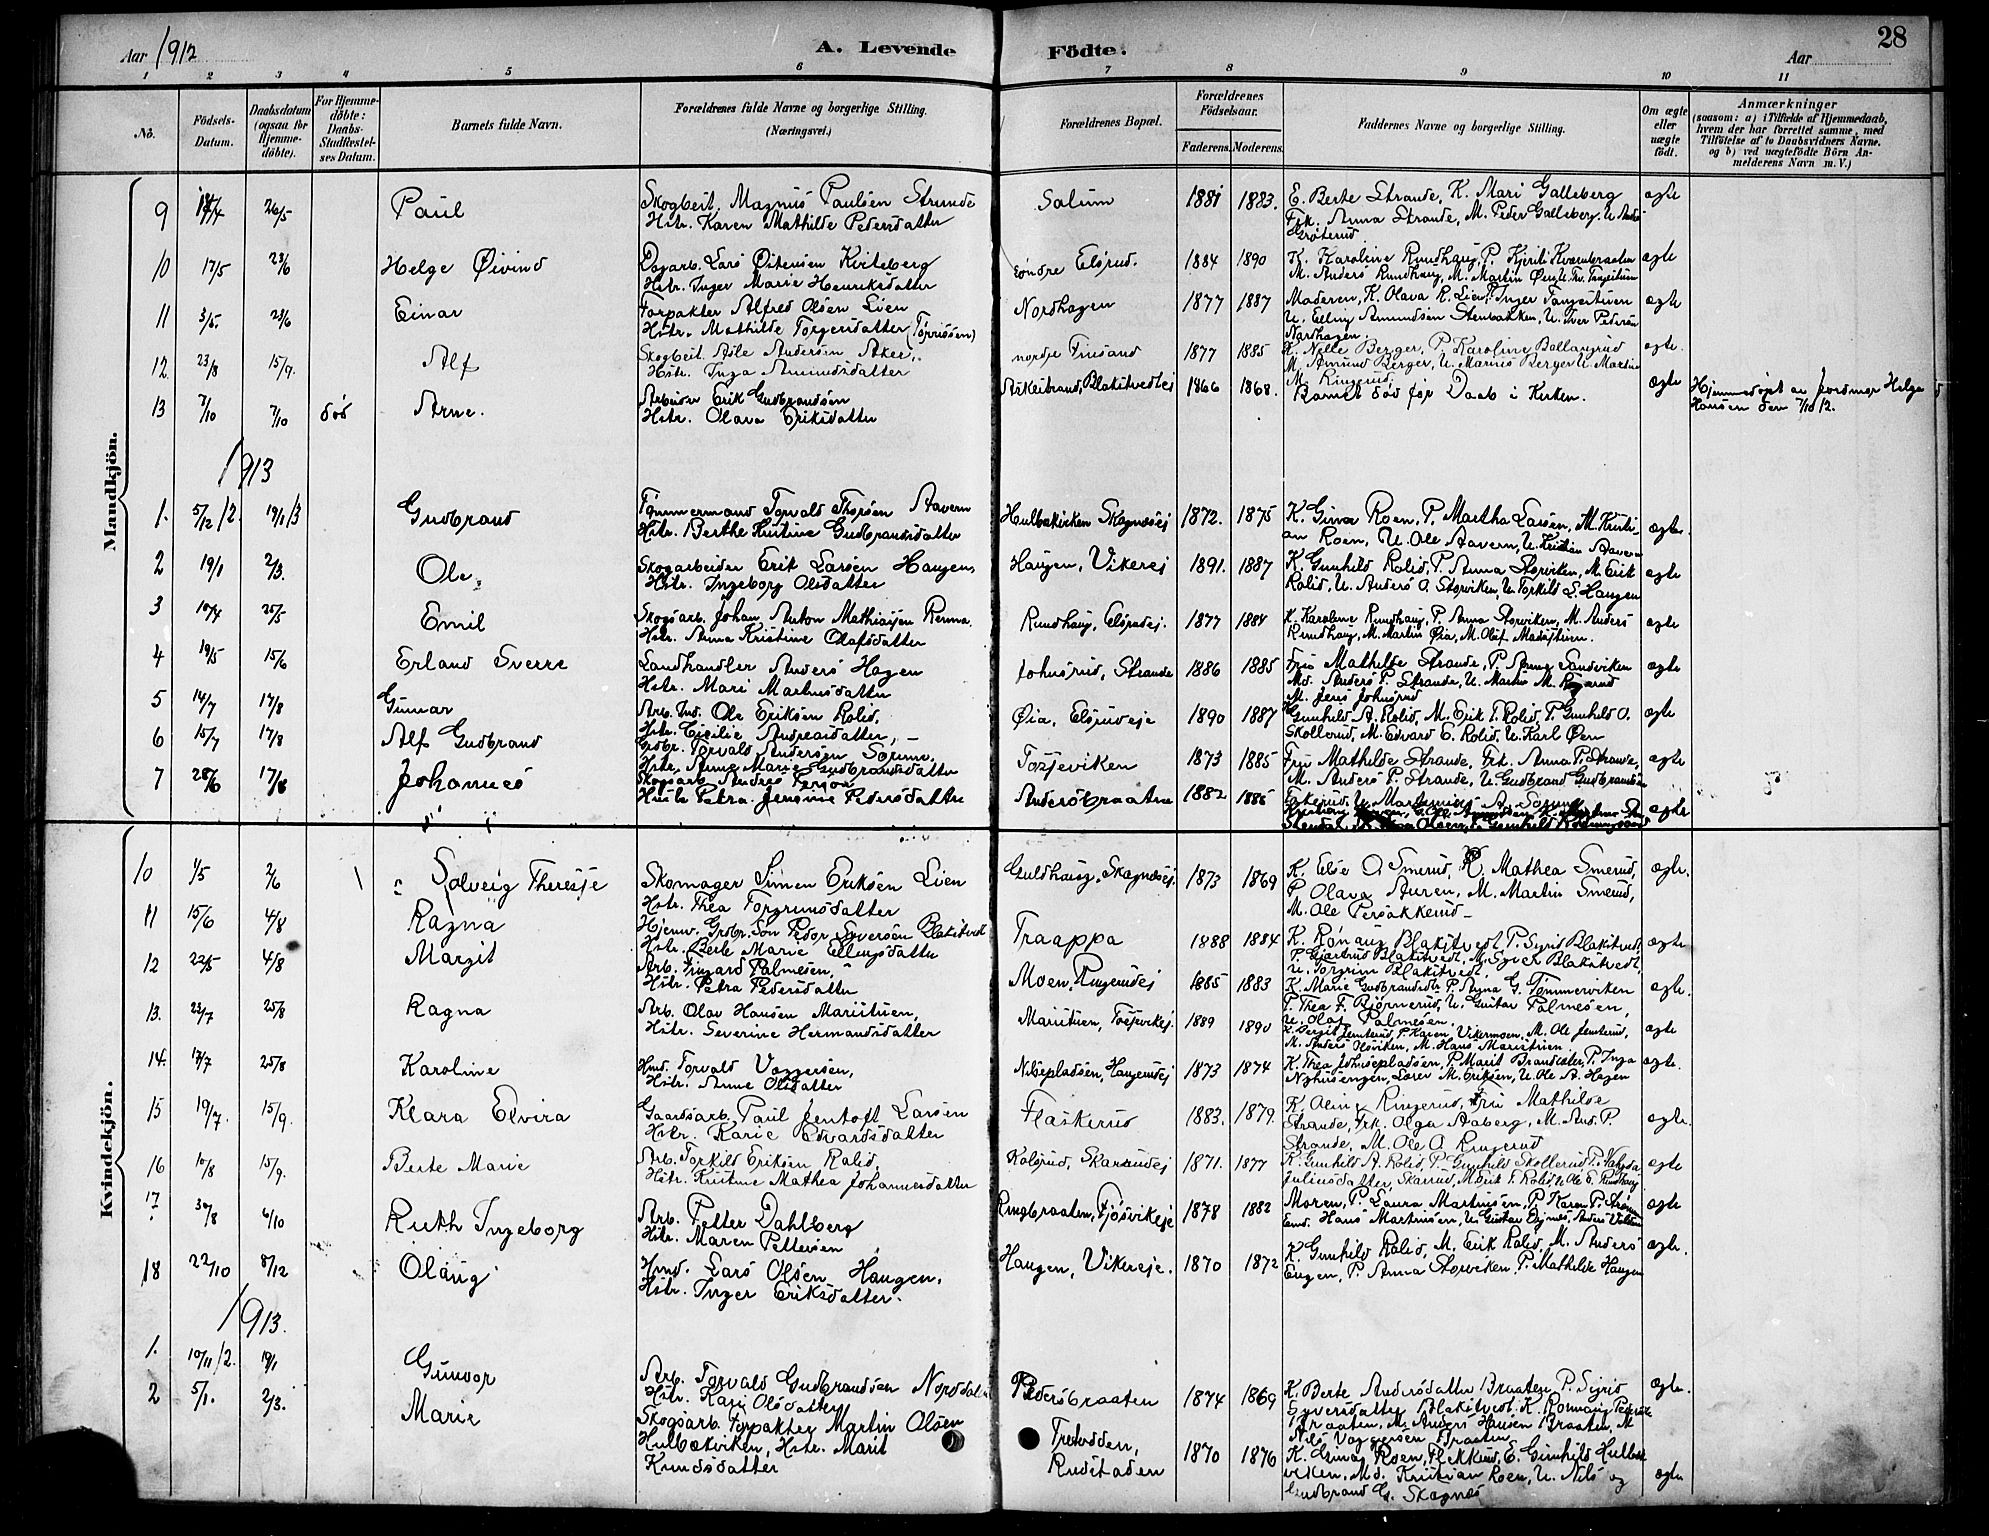 28
Aar 1912
A. Levende Födte.
Aar
1 2 3 4 5 6 7 8 9 10 11
No.
Födsels-Datum.
Daabsdatum (ogsaa for Hjemme-döbte).
For Hjemme-döbte: Daabs-Stadfæstel-ses Datum.
Barnets fulde Navn.
Forældrenes fulde Navne og borgerlige Stilling.
(Næringsvei.)
Forældrenes Bopæl.
Forældrenes Födselsaar.
Faderens. Moderens.
Faddernes Navne og borgerlige Stilling.
Om ægte eller uægte födt.
Anmærkninger
(saasom: a) i Tilfælde af Hjemmedaab,
hvem der har forrettet samme, med
Tilföielse af to Daabsvidners Navne.
og b) ved uægtefödte Börn An-
melderens Navn m. V.)
Mandkjön.
9 26/5 Paul
Skogbeit. Magnus Paulsen Strande
Hstr. Karen Mathilde Pedersdatter
Solum 1881 1883.
E. Berte Strande, K. Mari Galleberg
Frk. Anna Strande, M. Peder Galleberg, U.
Gröterud
ægte
10 17/5 23/6 Helge Öivind
Dagarb. Lars Kviteberg
Hstr. Inger Marie Henriksdatter
söndre Elsrud. 1884 1890
K. Karoline Rundhaug, P.
M. Anders Rundhaug, M. Martin
ægte
11 3/5. 23/6 Einar
Forpakter Alfred Olsen Lien
Hstr. Mathilde Torgersdatter
Nordhagen 1877 1887
Moderen, K. Olava R. Lien, P. Inger
U. Elling Amundsen Stenbakken, U. Iver Pedersen
Nordhagen
ægte
12. 23/8 15/9. Alf
Skogbeit. Asle Andersen Aker,
Hstr. Inga Amundsdatter
nordre Frusand 1877 1885
K. Nelle Berger, P. Karoline Bollangrud
M. Amund Berger, U. Marius Berger U. Martin
M. Ringerud.
ægte.
13 7/10 7/10 död Arne.
Arbeider Erik Gudbrandsen
Hstr. Olava Eriksdatter
Blakstvedtej 1866 1868.
Barnet död før Daab i Kirken.
ægte
Hjemmedöpt av Jordmor Helga
Hansen den 7/10 12.
1913
1. 5/12 12. 19/1 13 Gudbrand
Tömmermand Torvald Thorsen Aavern
Hstr. Berthe Kristine Gudbrandsdatter
Hulbækviken Skagnæsej 1872. 1875
K. Gina Roen, P. Martha Larsen, M. Kristi-
an Roen, U. Ole Aavern, U. Kristian Aavern
ægte
2 19/1 2/3. Ole.
Skogarbeider Erik Larsen Haugen
Hstr. Ingeborg Olsdatter
Haugen, Vikerej 1891. 1887
K. Gunhild Rolid, P. Anna Storviken, M. Erik
Rolid, U. Anders O. Storviken, U. Torkild L. Haugen
ægte
3 10/4 25/5 Emil
Skogsarb. Johan Anton Mathiasen Renna
Hstr. Anna Kristine Olafsdatter
Rundhaug, Elsrudej. 1877 1884
K. Karoline Rundhaug, P. Anna Storviken, M. Anders
Rundhaug, M. Martin Öia, M. Olaf
ægte
4 19/5 15/6 Erland Sverre
Landhandler Anders Hagen
Hstr. Mari Martinsdatter
Johnsrud, Strande 1886 1885
Fru Mathilde Strande, P. Anna Sandviken
Md. Anders P. Strande, U. Martin M.
M. Jens Johnsrud
ægte
5 14/7 17/8 Gunnar
Arb. Ind. Ole Eriksen Rolid,
Hstr. Cicilie Andreasdatter,
Öia, Elsrudeje 1890 1887
Gunhild A. Rolid, M. Erik T. Rolid, P. Gunhild O.
Skollerud, M. Edvard E. Rolid, U. Karl Öen
ægte
6 15/7 17/8 Alf Gudbrand
Grdbr. Torvald Andersen Sörum,
Hstr. Anne Marie Gudbrandsdatter
Tosseviken 1873 1885
Fru Mathilde Strande, Frk. Anna P. Strande,
M. Anders P. Strande, U. Gudbrand Gudbrandsen
ægte
7 28/6 17/8 Johannes
Skogsarb. Anders
Hustr. Petra Jensine Pedersdatter
Andersbraaten 1882 1885
ægte
Kvindekjön.
10 1/5 2/6 Solveig Therese
Skomager Simen Eriksen Lien
Hstr. Thea Torgrimsdatter
Guldhaug, Skagnæsej. 1873 1869
K. Else O. Smerud, K. Mathea Smerud,
P. Olava Auren, M. Martin Smerud,
M. Ole Persakkerud
ægte.
11 15/6 4/8 Ragna
Hjemv. Grdbr. Sön Peder Syversen Blakstvedt
Hstr. Berte Marie Ellingsdatter
Traappa 1888 1884
K. Rönaug Blakstvedt, P. Sigrid Blakstvedt,
P. Gjertrud Blakstvedt, M. Syver Blakstvedt,
U. Torgrim Blakstvedt.
ægte
12 22/5 4/8 Margit
Arb. Palmesen,
Hstr. Petra Pedersdatter
Moen, Ringerudej 1885 1883
K. Marie Gudbrandsdtr. P. Anna G. Tömmerviken
P. Thea F. Björnerud, U. Gustav Palmesen,
U. Olaf Palmesen.
ægte.
13. 23/7 25/8 Ragna
Arb. Olav Hansen Mariituen,
Hstr. Severine Hermandsdatter
Mariituen, Tossevikej. 1889 1890
Vikermoen, M. Ole
M. Anders M. Hans Mariituen
ægte
14. 17/7 25/8 Karoline
Hmd. Torvald Vaggersen,
Hstr. Anne Olsdatter
Nibepladsen, Haugerudej 1873 1874
K. Thea Johnsepladsen, P. Marit P. Inga
Nyhusengen, Lærer M. Eriksen, U. Ole A. Hagen
ægte.
15 19/7. 15/9. Klara Elvira
Gaardsarb. Paul Jentoft Larsen
Hstr. Karie Edvardsdatter
Flaskerud 1883. 1879.
K. Oline Ringerud, Fru Mathilde
Strande, Frk. Olga Aaberg, M. And. P.
Strande, M. Ole O. Ringerud
ægte.
16 10/8 15/9. Berte Marie
Arb. Torkild Eriksen Rolid,
Hstr. Kristine Mathea Johannesdatter
Kolsrud, Skarrudej 1871. 1877
K. Gunhild A. Rolid, P. Gunhild Skollerud,
Juliusdatter, Skarrud, M. Erik T. Rolid, U. Ole E. Rundhaug
ægte
17. 30/8 6/10 Ruth Ingeborg
Arb. Petter Dahlberg
Hstr. Maren Pettersen
Ringbraaten, Fjösvikeje 1878 1882
Moren, P. Laura Martinsen, P. Karen P. Ström
Hans Martinsen, U. Gustav
ægte
18 22/10 8/12 Olaug
Hmd. Lars Olsen Haugen,
Hstr. Inger Eriksdatter.
Haugen, Vikereje. 1870 1872
K. Gunhild Rolid, M. Erik Rolid, M. Anders
Engen, P. Anna Storviken, P. Mathilde Haugen
ægte.
1913.
1. 10/11 12. 19/1 Gunvor
Arb. Torvald Gudbrandsen Norddalen
Hstr. Kari Olsdatter
Pedersbraaten 1874 1869
K. Berte Andersdatter Braaten, P. Sigrid
Syversdatter Blakstvedt, K. Rönnaug
Braaten, M. Anders Hansen Braaten, M
Nils Vaggersen Braaten
ægte.
2 5/1. 2/3. Marie
Skogsarb. Forpakter Martin Olsen
Hulbækviken, Hstr. Marit
Knudsdatter
Trestedden,
Rudstaden 1870 1876
K. Gina Roen, Flekkerud, E. Gunhild Hulbæk
viken, Md. Kristian Roen, U. Nils og
Gudbrand G. Skagnæs
ægte